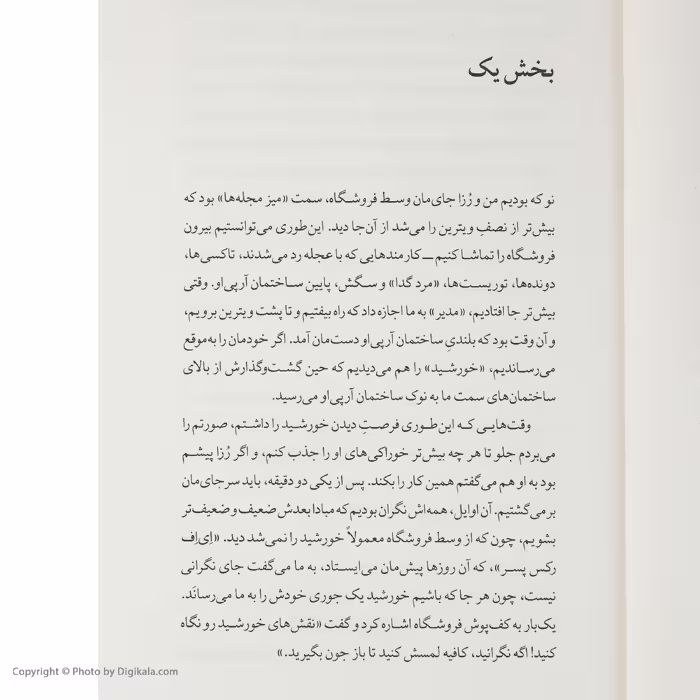 بخش یک
نو که بودیم من و رُزا جای‌مان وسط فروشگاه، سمت «میز مجله‌ها» بود که
بیش‌تر از نصفِ ویترین را می‌شد از آن‌جا دید. این‌طوری می‌توانستیم بیرون
فروشگاه را تماشا کنیم ـــ کارمندهایی که با عجله رد می‌شدند، تاکسی‌ها،
دونده‌ها، توریست‌ها، «مرد گدا» و سگش، پایین ساختمان آرپی‌او. وقتی
بیش‌تر جا افتادیم، «مدیر» به ما اجازه داد که راه بیفتیم و تا پشت ویترین برویم،
و آن وقت بود که بلندیِ ساختمان آرپی‌او دست‌مان آمد. اگر خودمان را به‌موقع
می‌رساندیم، «خورشید» را هم می‌دیدیم که حین گشت‌وگذارش از بالای
ساختمان‌های سمت ما به نوک ساختمان آرپی‌او می‌رسید.
وقت‌هایی که این‌طوری فرصتِ دیدن خورشید را داشتم، صورتم را
می‌بردم جلو تا هر چه بیش‌تر خوراکی‌های او را جذب کنم، و اگر رُزا پیشم
بود به او هم می‌گفتم همین کار را بکند. پس از یکی دو دقیقه، باید سر جای‌مان
بر می‌گشتیم. آن اوایل، همه‌اش نگران بودیم که مبادا بعدش ضعیف و ضعیف‌تر
بشویم، چون که از وسط فروشگاه معمولاً خورشید را نمی‌شد دید. «اِی‌اِف
رکس پسر»، که آن روزها پیش‌مان می‌ایستاد، به ما می‌گفت جای نگرانی
نیست، چون هر جا که باشیم خورشید یک جوری خودش را به ما می‌رسانَد.
یک‌بار به کف‌پوش فروشگاه اشاره کرد و گفت «نقش‌های خورشید رو نگاه
کنید! اگه نگرانید، کافیه لمسش کنید تا باز جون بگیرید.»
Copyright © Photo by Digikala.com